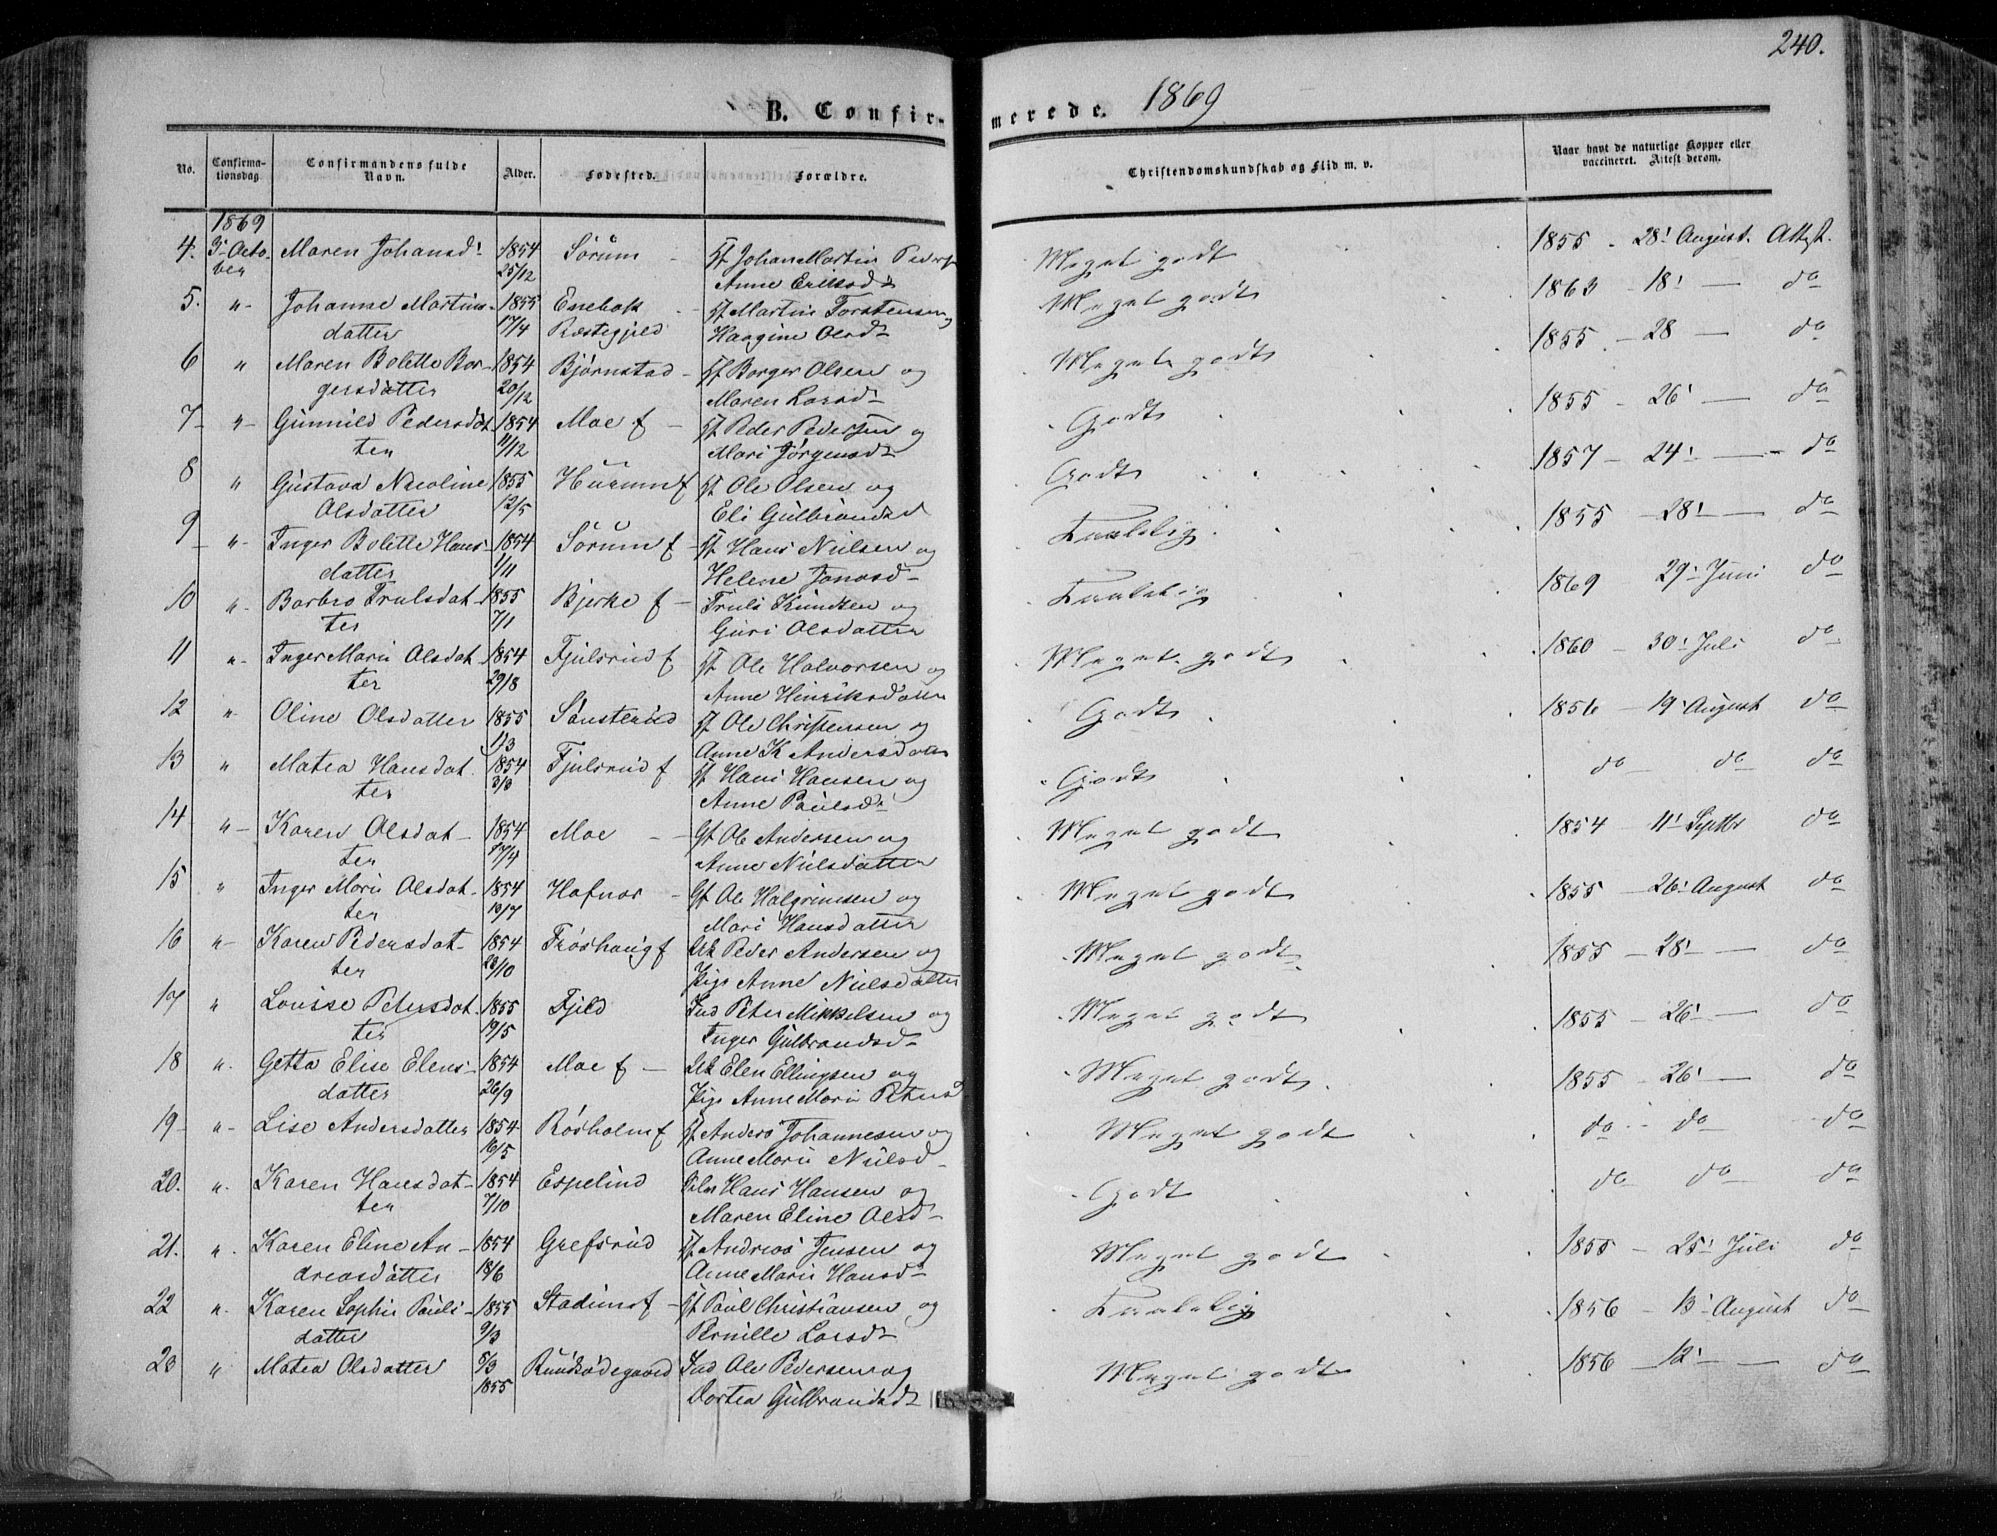 240.
B. Confirmerede. 1869
No. Confirmationsdag. Confirmandens fulde Navn. Alder. Fødested. Forældre. Christendomskundskab og Flid m. v. Naar havt de naturlige Kopper eller vaccineret. Attest derom.
1869
4. 3' October Maren Johansd: 1854 25/12 Sørum Johan Martin Anne Eriksd: Meget godt 1855 - 28' August. Attest.
5. " Johanne Martinsdatter 1855 17/4 Enebak Præstegjeld Martin Torstensen og Olsdt Meget godt 1863 - 18' — do
6 " Maren Bolette Borgersdatter 1854 20/12 Bjørnstad Borger Olsen og Maren Larsdt Meget godt 1855 - 28 — do
7 " Gunnild Pedersdatter 1854 11/12 Moe f Peder Pedersen og Mari Jørgensd Godt 1855 - 26' — do
8 " Gustava Nicoline Olsdatter 1855 12/5 Ole Olsen og Eli Gulbrandsd Godt 1857 - 24' — do
9 " Inger Bolette Hansdatter 1854 1/11 Sørum f Hans Nielsen og Helene Jonasd Taalelig 1855 - 28' — do
10 " Barbro Trulsdatter 1855 7/1 Bjerke f Truls Knudsen og Guri Olsdatter Taalelig 1869 29' Juni do
11 " Inger Marie Olsdatter 1854 29/8 Fjulsrud f Ole Halvorsen og Anne Hinriksdatter Meget godt 1860 - 30' Juli do
12 " Oline Olsdatter 1855 Sønsterud Ole Christensen og Anne K Andersdatter Godt 1856 - 19' August do
13 " Matea Hansdatter 1854 3/3 Fjulsrud f Hans Hansen og Anne Paulsd: Godt do do do
14 " Karen Olsdatter 1854 Moe Gf Ole Andersen og Anne Nielsdatter Meget godt 1854 - 11' Septbr do
15 " Inger Marie Olsdatter 1854 Hafnor Gf Ole Halgrimsen og Mari Hansdatter Meget godt 1855 - 26' August do
16 " Karen Pedersdatter 1854 28/10 Frøshaug f Uk Peder Andersen og Pige Anne Nielsdatter Meget godt 1855 - 28' — do
17 " Louisse Petersdatter 1855 19/5 Fjeld Ind Peter Mikkelsen og Inger Gulbrandsd Meget godt 1855 - 26' — do
18 " Getta Elise Elensdatter 1854 26/9 Moe f Uk Elen Ellingsen og Pige Anne Marie Petersd Meget godt 1855 - 26' — do
19 " Lise Andersdatter 1854 16/5 Røsholm f Anders Johannesen og Anne Marie Nielsd Meget godt do do do
20. " Karen Hansdatter 1854 7/10 Espelund Hans Hansen og Maren Eline Olsd Godt do do do
21. " Karen Eline Andreasdatter 1854 18/6 Grefsrud Andreas Jensen og Anne Marie Hansd Meget godt 1855 - 25' Juli do
22 " Karen Sophie Paulsdatter 1855 9/3 Paul Christiansen og Pernille Larsdt Taalelig 1856 - 13' August do
23 " Matea Olsdatter 5/3 1855 Ind Ole Pedersen og Dortea Gulbrandsdt Meget godt 1856 - 12' — do